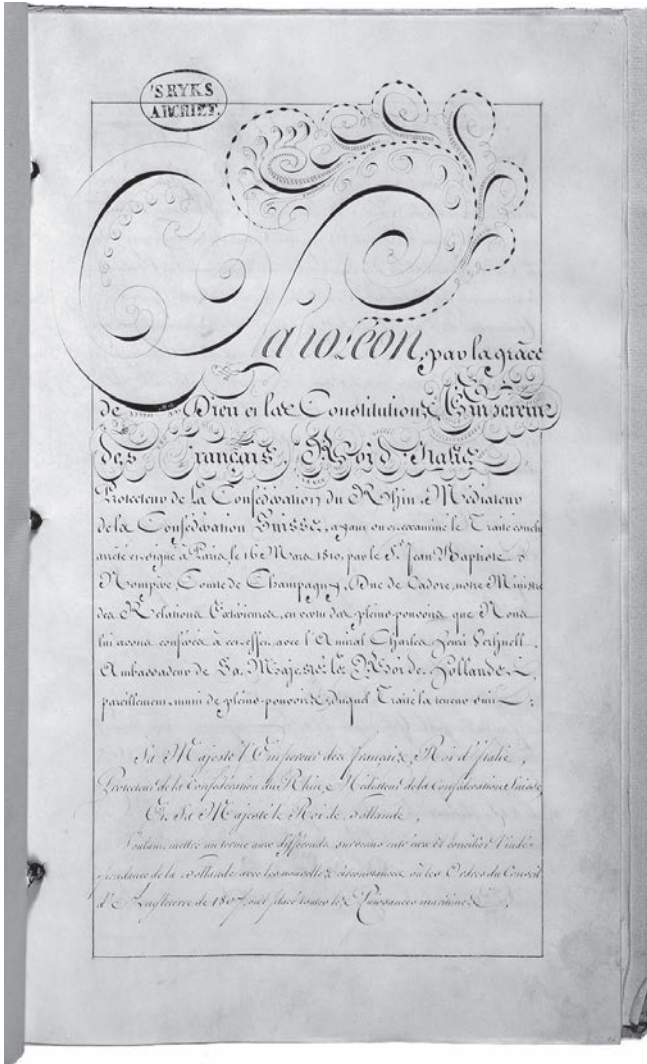 'SRYKS
ARCHIEF.
Napoléon, par la grâce
de Dieu et les Constitutions, Empereur
des Français, Roi d'Italie,
Protecteur de la Confédération du Rhin, Médiateur
de la Confédération Suisse, ayant vu et examiné le Traité conclu
arrêté et signé à Paris, le 16 Mars 1810, par le Sr. Jean Baptiste
Nompère, Comte de Champagny, Duc de Cadore, notre Ministre
des Relations Extérieures, en vertu des pleins-pouvoirs que Nous
lui avons conférés à cet effet, avec l'Amiral Charles Henri Verhuell,
Ambassadeur de Sa Majesté le Roi de Hollande,
pareillement muni de pleins-pouvoirs, duquel Traité la teneur suit:
Sa Majesté l'Empereur des français, Roi d'Italie,
Protecteur de la Confédération du Rhin, Médiateur de la Confédération Suisse,
Et Sa Majesté le Roi de Hollande,
Voulant mettre un terme aux différends survenus entr'eux et concilier l'indé-
pendance de la Hollande avec les nouvelles circonstances où les Ordres du Conseil
d'Angleterre de 1807, ont placé toutes les Puissances maritimes,